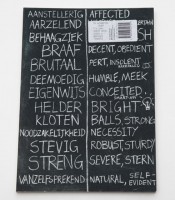 AANSTELLERIG AFFECTED
AARZELEND
BEHAAGZIEK
BRAAF DECENT, OBEDIENT
BRUTAAL PERT, INSOLENT
DEEMOEDIG HUMBLE, MEEK
EIGENWIJS CONCEITED
HELDER BRIGHT
KLOTEN BALLS, STRONG
NOODZAKELIJKHEID NECESSITY
STEVIG ROBUST, STURDY
STRENG SEVERE, STERN
VANZELFSPREKEND NATURAL, SELF-
EVIDENT